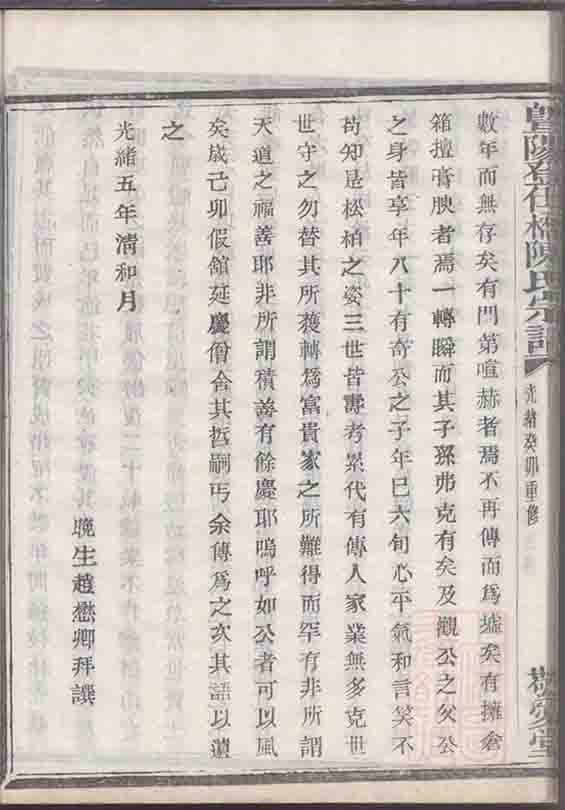 暨陽夅住橋陳氏宗譜
光緒癸卯重修
數年而無存矣有門第喧赫者焉不再傳而為墟矣有擁倉
箱擅膏腴者焉一轉瞬而其子孫弗克有矣及觀公之父公
之身皆享年八十有奇公之子年巳六旬心平氣和言笑不
苟知是松柏之姿三世皆壽考累代有傳人家業無多克世
世守之勿替其所獲轉為富貴家之所難得而罕有非所謂
天道之福善耶非所謂積善有餘慶耶嗚呼如公者可以風
矣歲己卯假館延慶僧舍其哲嗣丐余傳為之次其語以遺
之
光緒五年清和月
晚生趙懋卿拜譔